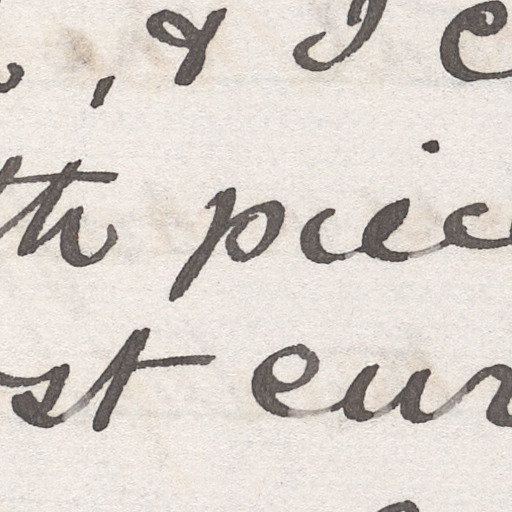 , & I
th piec
st eur